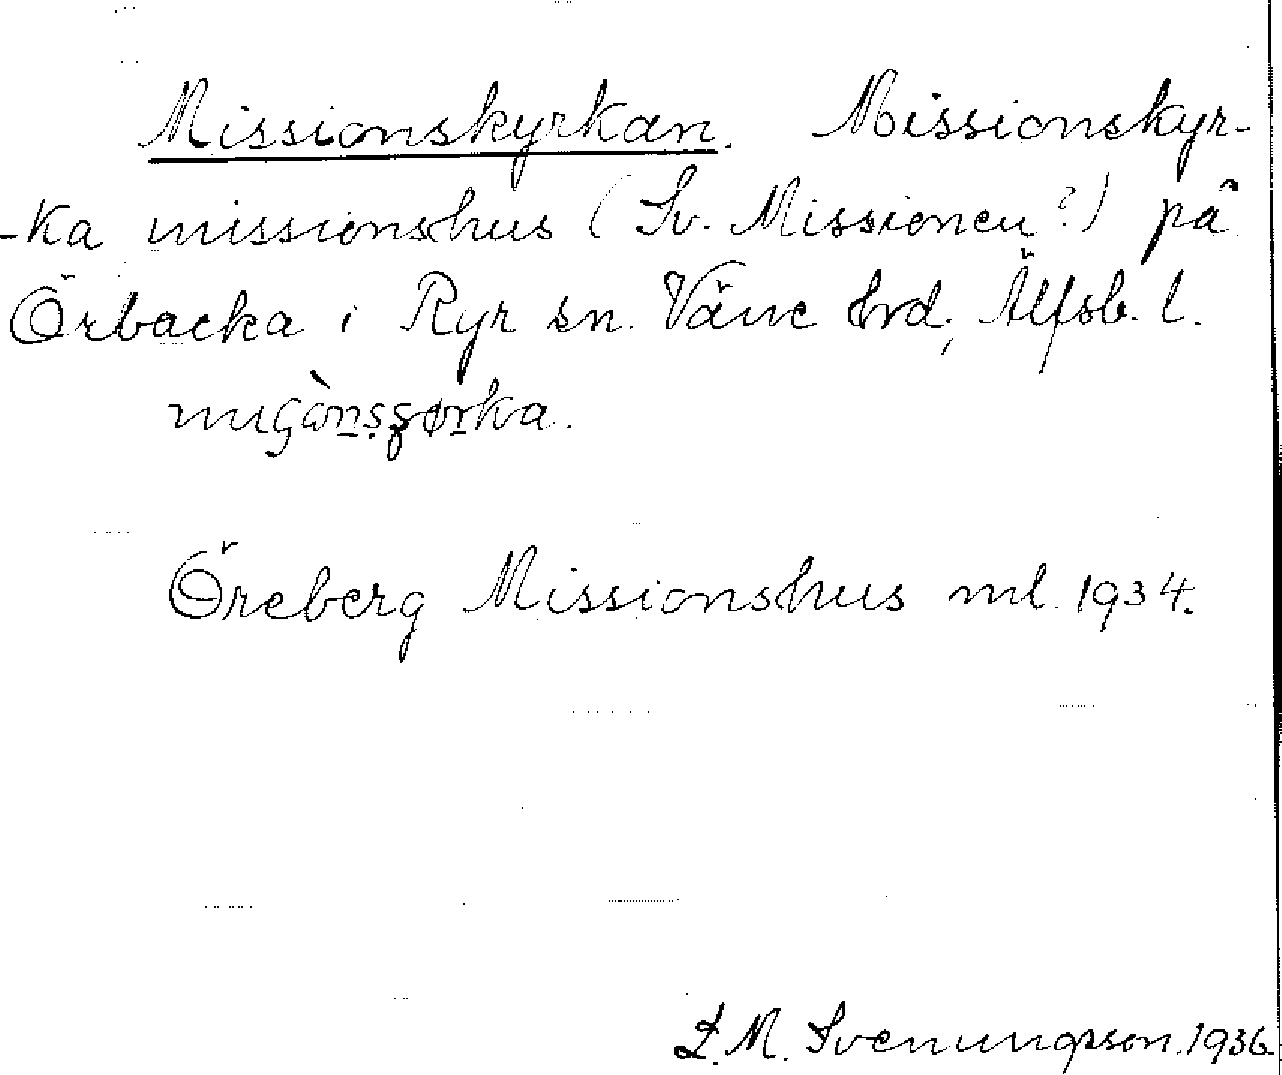 Missionskyrkan. Missionskyr-
-ka missionshus (Sv. Missionen?) på
Örbacka i Ryr sn. Väne hrd, Älfsb. l.
Öreberg Missionshus ml. 1934.
L. M. Svenungsson. 1936